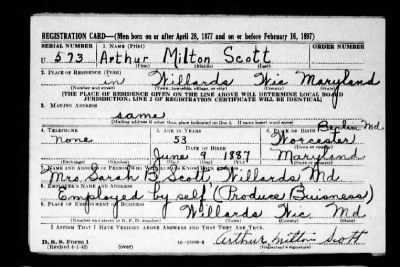 REGISTRATION CARD—(Men born on or after April 28, 1877 and on or before February 16, 1897)
SERIAL NUMBER 1. NAME (Print) ORDER NUMBER
U 573 Arthur Milton Scott
(First) (Middle) (Last)
2. PLACE OF RESIDENCE (Print)
in Willards Wic Maryland
(Number and street) (Town, township, village, or city) (County) (State)
[THE PLACE OF RESIDENCE GIVEN ON THE LINE ABOVE WILL DETERMINE LOCAL BOARD
JURISDICTION; LINE 2 OF REGISTRATION CERTIFICATE WILL BE IDENTICAL]
3. MAILING ADDRESS
same
[Mailing address if other than place indicated on line 2. If same insert word same]
4. TELEPHONE 5. AGE IN YEARS 6. PLACE OF BIRTH Berlin Md
none 53 Worcester
DATE OF BIRTH (Town or county)
June 9 1887 Maryland
(Exchange) (Number) (Mo.) (Day) (Yr.) (State or country)
7. NAME AND ADDRESS OF PERSON WHO WILL ALWAYS KNOW YOUR ADDRESS
Mrs. Sarah B Scott, Willards Md
8. EMPLOYER'S NAME AND ADDRESS
Employed by self (Produce Buisness)
9. PLACE OF EMPLOYMENT OR BUSINESS
Willards Wic. Md
(Number and street or R. F. D. number) (Town) (County) (State)
I AFFIRM THAT I HAVE VERIFIED ABOVE ANSWERS AND THAT THEY ARE TRUE.
D. S. S. Form 1
(Revised 4-1-42) (over) Arthur Milton Scott
(Registrant's signature)